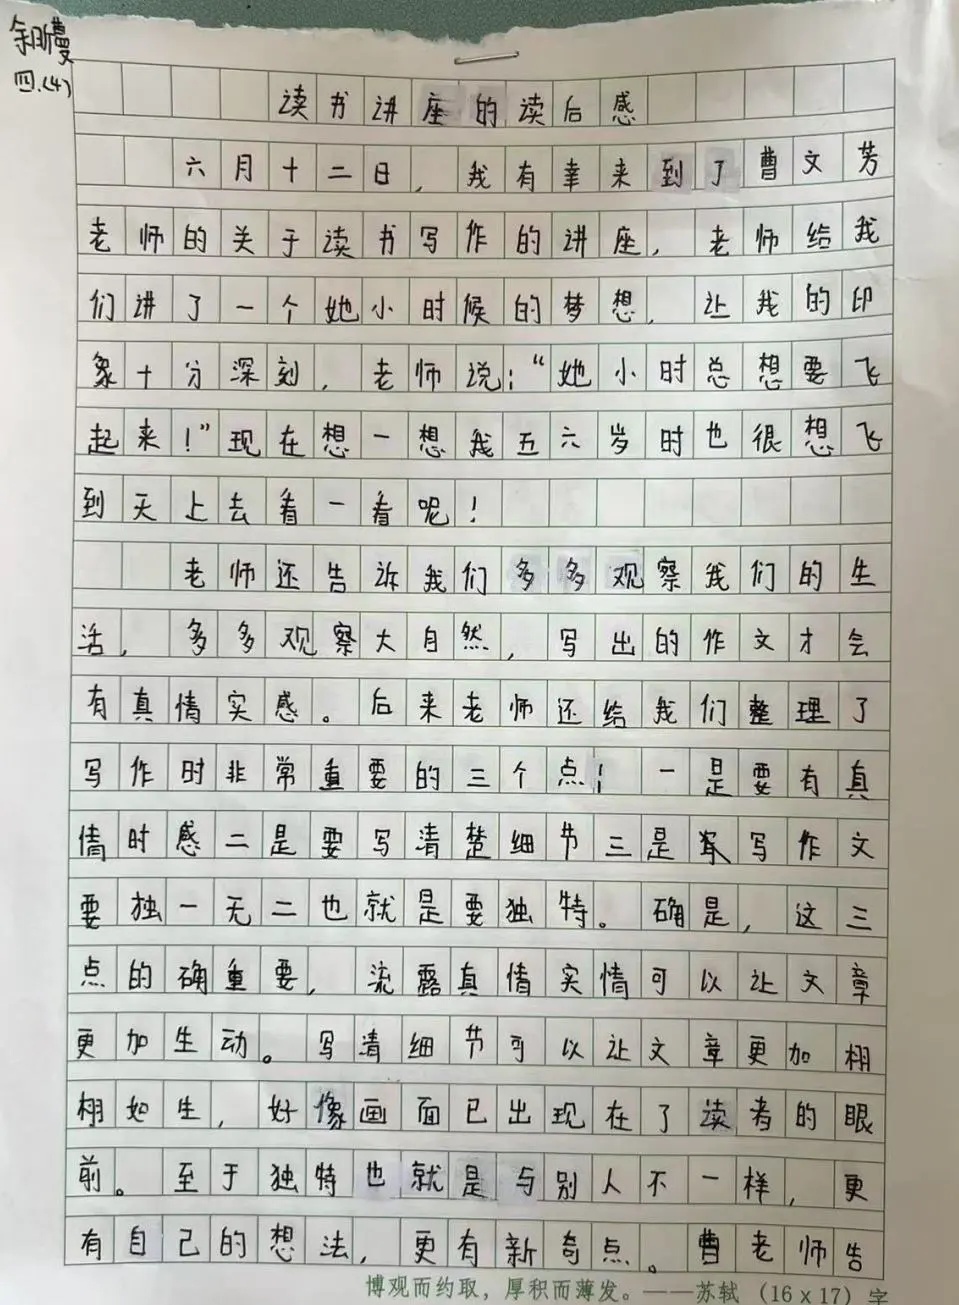 余昕蔓
四.(4)
读书讲座的读后感
六月十二日，我有幸来到了曹文芳
老师的关于读书写作的讲座，老师给我
们讲了一个她小时候的梦想，让我的印
象十分深刻，老师说：“她小时总想要飞
起来！”现在想一想我五六岁时也很想飞
到天上去看一看呢！
老师还告诉我们多多观察我们的生
活，多多观察大自然，写出的作文才会
有真情实感。后来老师还给我们整理了
写作时非常重要的三个点！一是要有真
情时感二是要写清楚细节三是写作文
要独一无二也就是要独特。确是，这三
点的确重要，流露真情实情可以让文章
更加生动。写清细节可以让文章更加栩
栩如生，好像画面已出现在了读者的眼
前。至于独特也就是与别人不一样，更
有自己的想法，更有新奇点。曹老师告
博观而约取，厚积而薄发。——苏轼（16×17）字